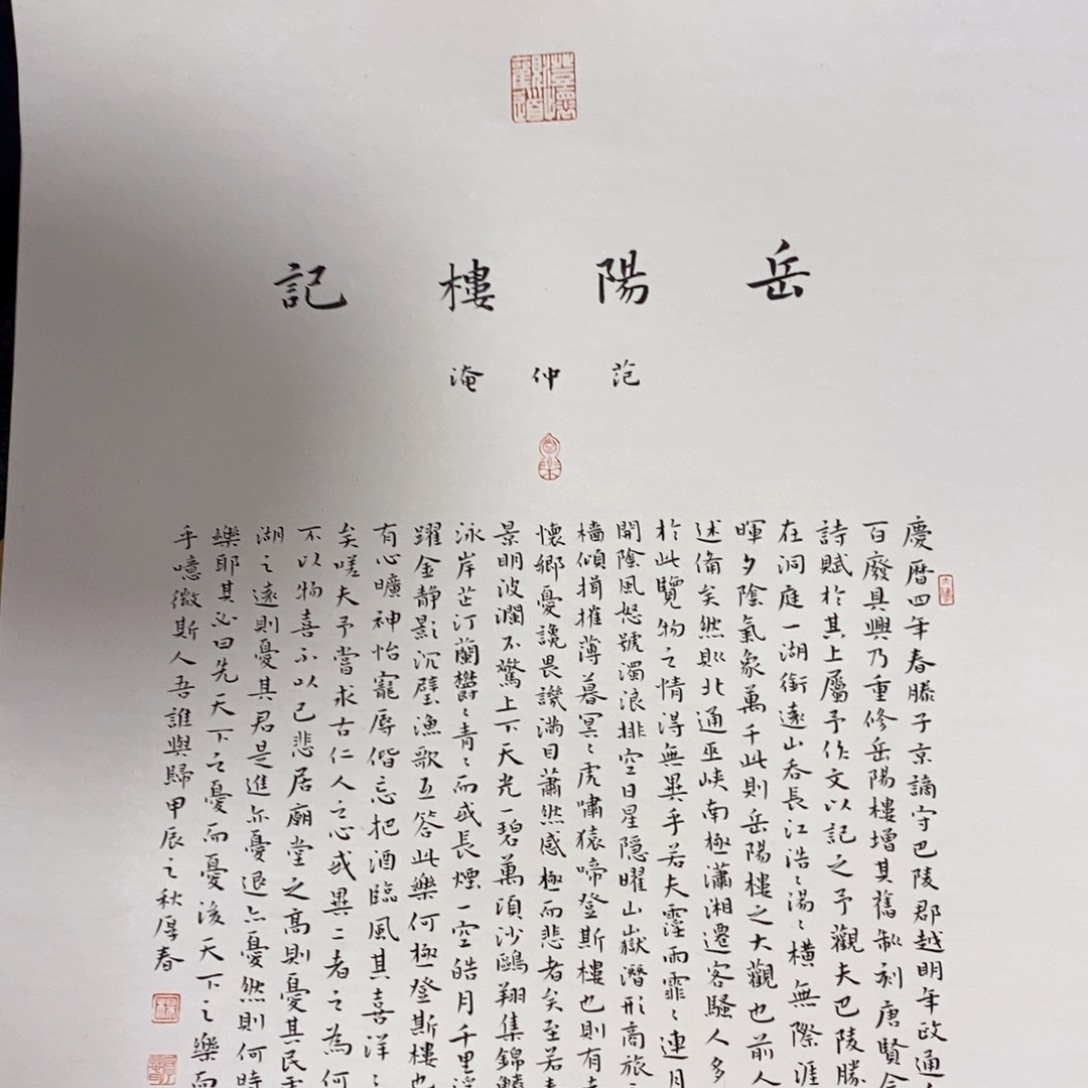 澄懷觀道
岳陽樓記
范仲淹
慶曆四年春滕子京謫守巴陵郡越明年政通
百廢具興乃重修岳陽樓增其舊制刻唐賢今
詩賦於其上屬予作文以記之予觀夫巴陵勝
在洞庭一湖銜遠山吞長江浩〻湯〻橫無際涯
暉夕陰氣象萬千此則岳陽樓之大觀也前人
述備矣然則北通巫峽南極瀟湘遷客騷人多
於此覽物之情得無異乎若夫霪雨霏〻連月
開陰風怒號濁浪排空日星隱曜山嶽潛形商旅
檣傾楫摧薄暮冥〻虎嘯猿啼登斯樓也則有
懷鄉憂讒畏譏滿目蕭然感極而悲者矣至若春
景明波瀾不驚上下天光一碧萬頃沙鷗翔集錦鱗
泳岸芷汀蘭鬱〻青〻而或長煙一空皓月千里浮
躍金靜影沉璧漁歌互答此樂何極登斯樓也
有心曠神怡寵辱偕忘把酒臨風其喜洋〻
矣嗟夫予嘗求古仁人之心或異二者之為何
不以物喜不以己悲居廟堂之高則憂其民處
湖之遠則憂其君是進亦憂退亦憂然則何時
樂耶其必曰先天下之憂而憂後天下之樂而
乎噫微斯人吾誰與歸甲辰之秋厚春